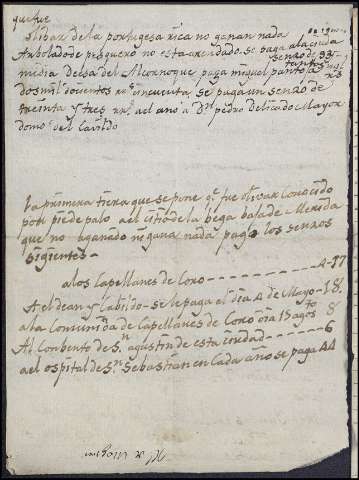 que fue
olibar de la portugesa Rica no ganan nada
Arbolado de pesquero no esta arendado. se paga a la ciuda
media desa del Alcornoque paga miguel pantoja
dos mil docientos rs. cincuenta, se paga un senzo de
treinta y tres rrs. al año a Dn. pedro Delicado Mayor
domo del Cavildo
la primera tiera que se pone q. fue olivar Conocido
por piede palo a el citio de la bega baja de Merida
que no a ganado ni gana nada pago los senzos
sigientes -
a los Capellanes de Coro - 4-17
A el dean y Cabildo - se le paga el dia 4 de Mayo - 18
a la Comunidad de Capellanes de Coro dia 15 agosto 8
Al Conbento de Sn. agustin de esta ciudad - 6
a el ospital de Sn. Sebastian en Cada año se paga 44